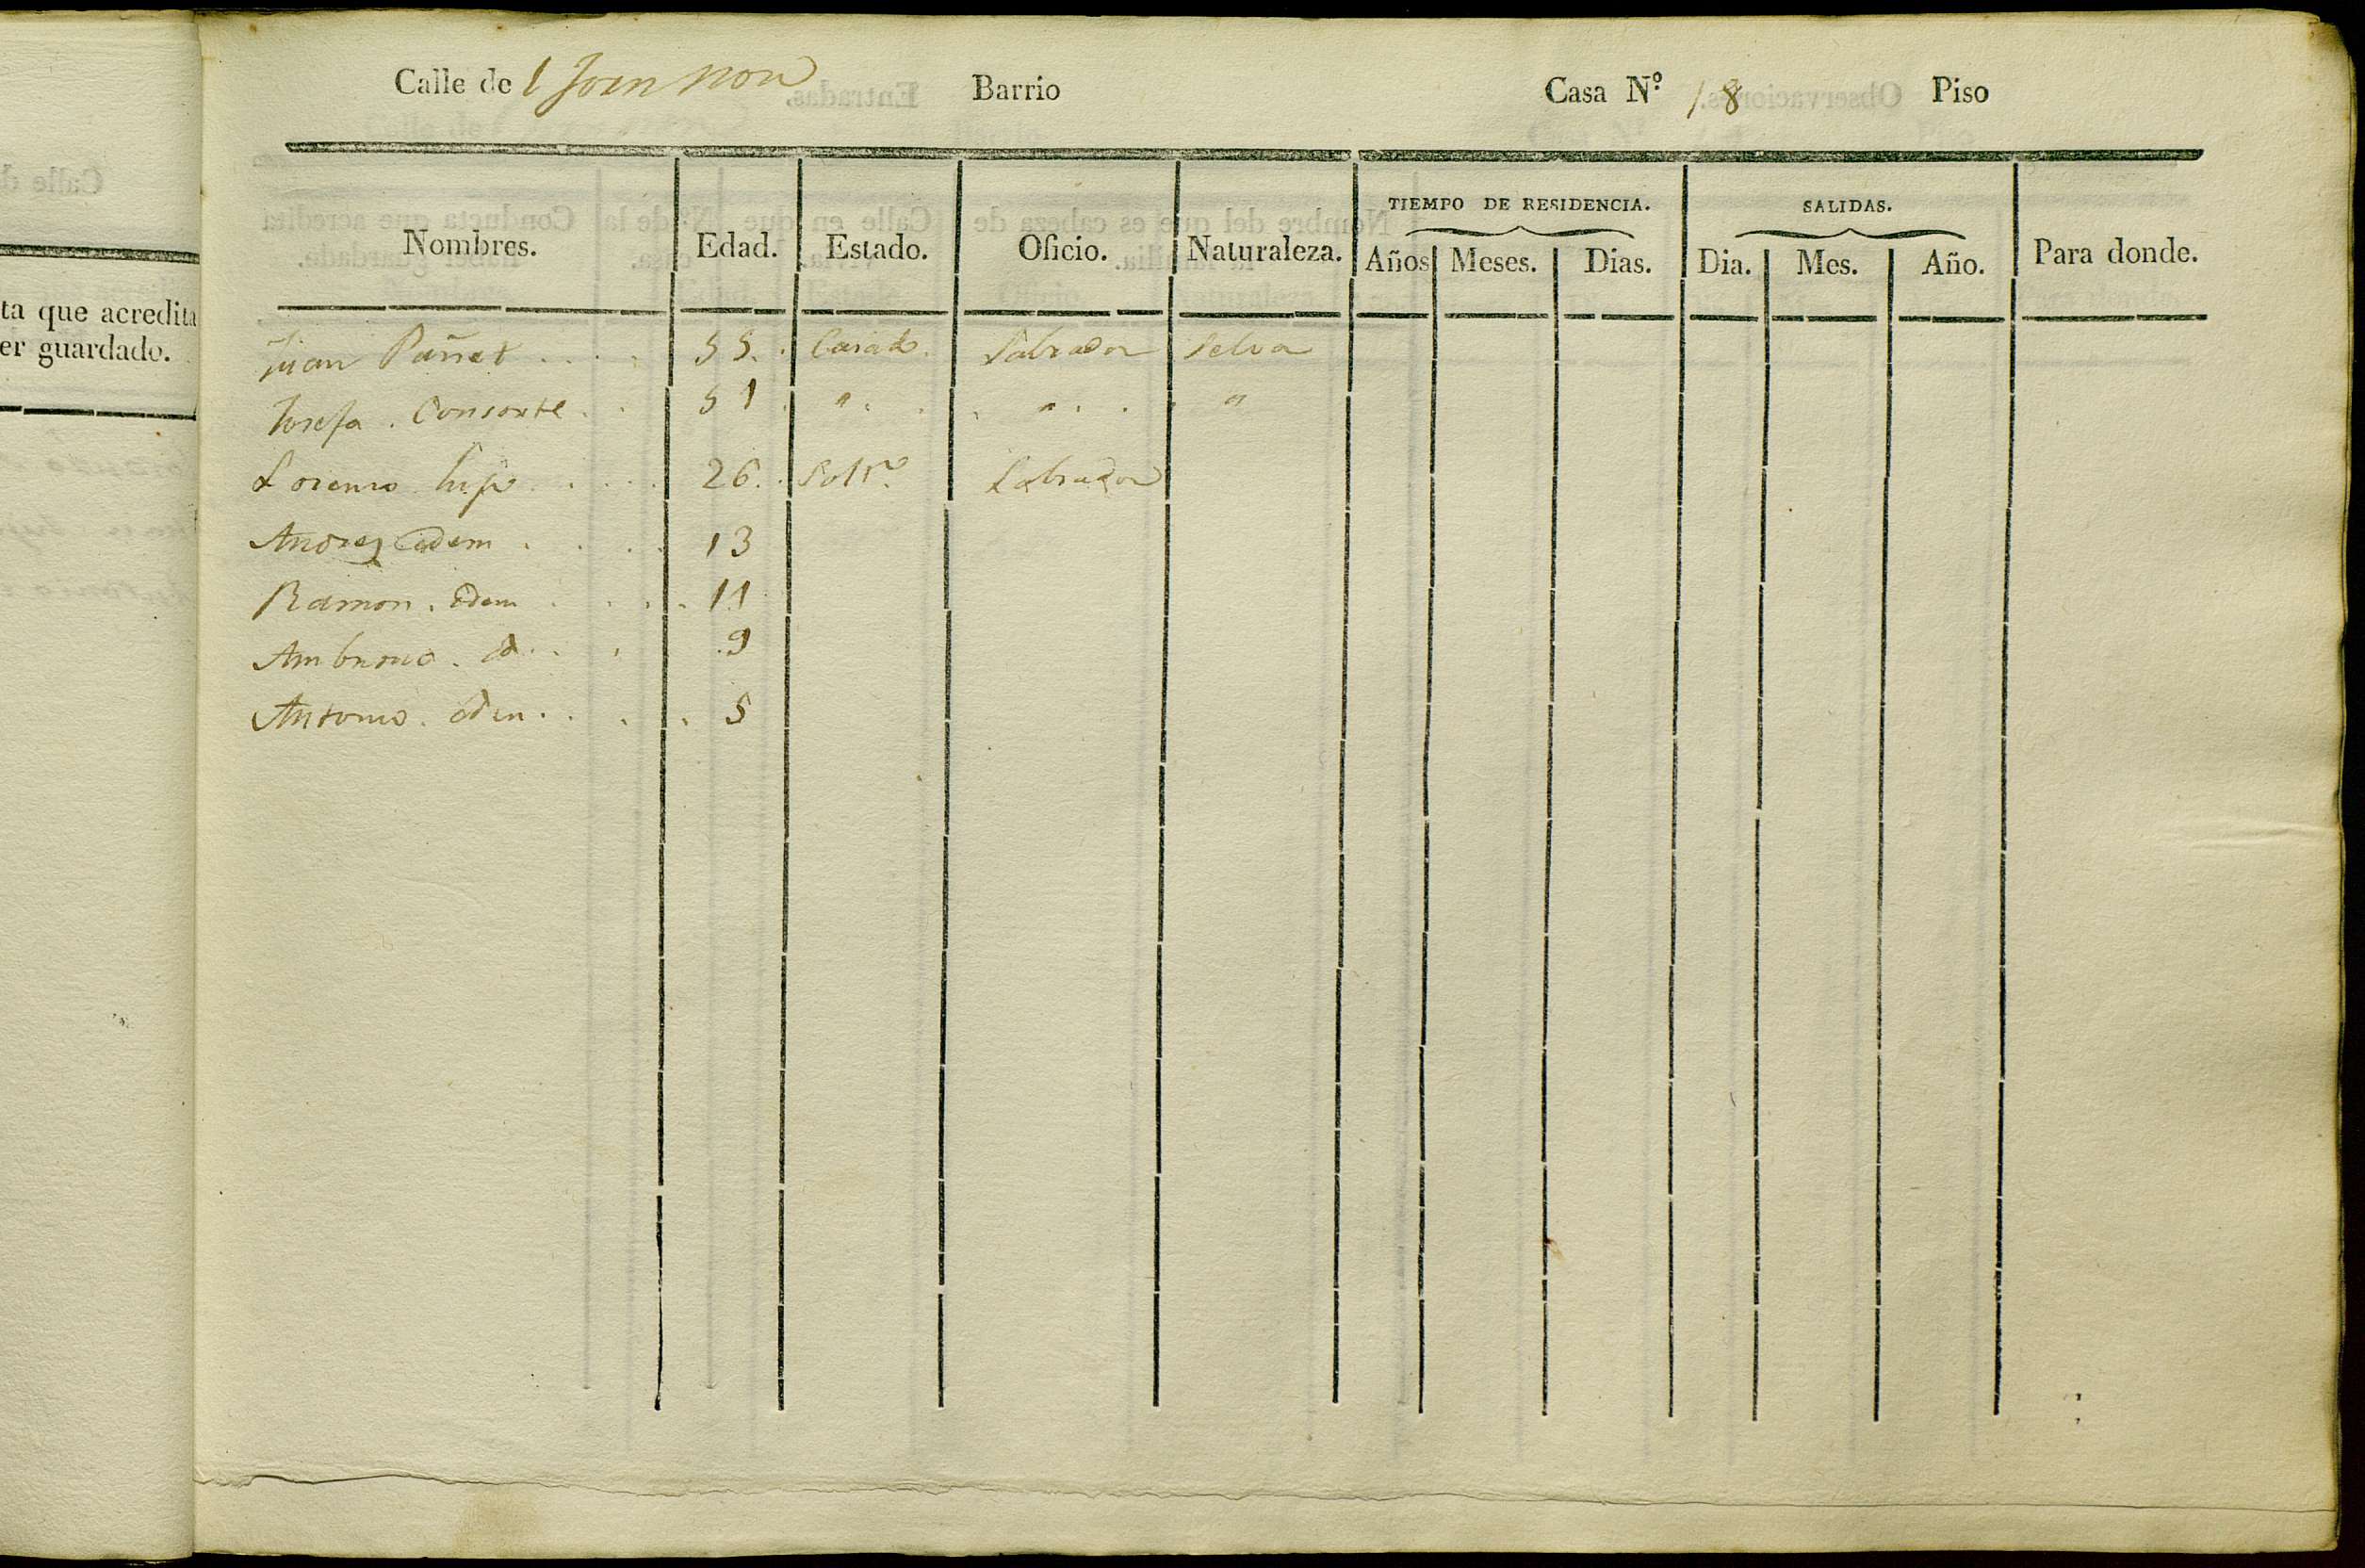 Calle de l Forn nou Barrio Casa N.º 18 Piso
TIEMPO DE RESIDENCIA. SALIDAS.
Nombres. Edad. Estado. Oficio. Naturaleza. Años Meses. Dias. Dia. Mes. Año. Para donde.
ta que acredita
er guardado.
Juan . . . . 55. . Casado. Labrador Selva
Josefa . Consorte . . 51 . " . . . " . . . "
Lorenzo hijo . . . . 26. . Soltº. Labrador
Andres idem . . . . 13
Ramon . idem . . . . 11
Ambrosio . id . . . . 9
Antonio . idem . . . . 5